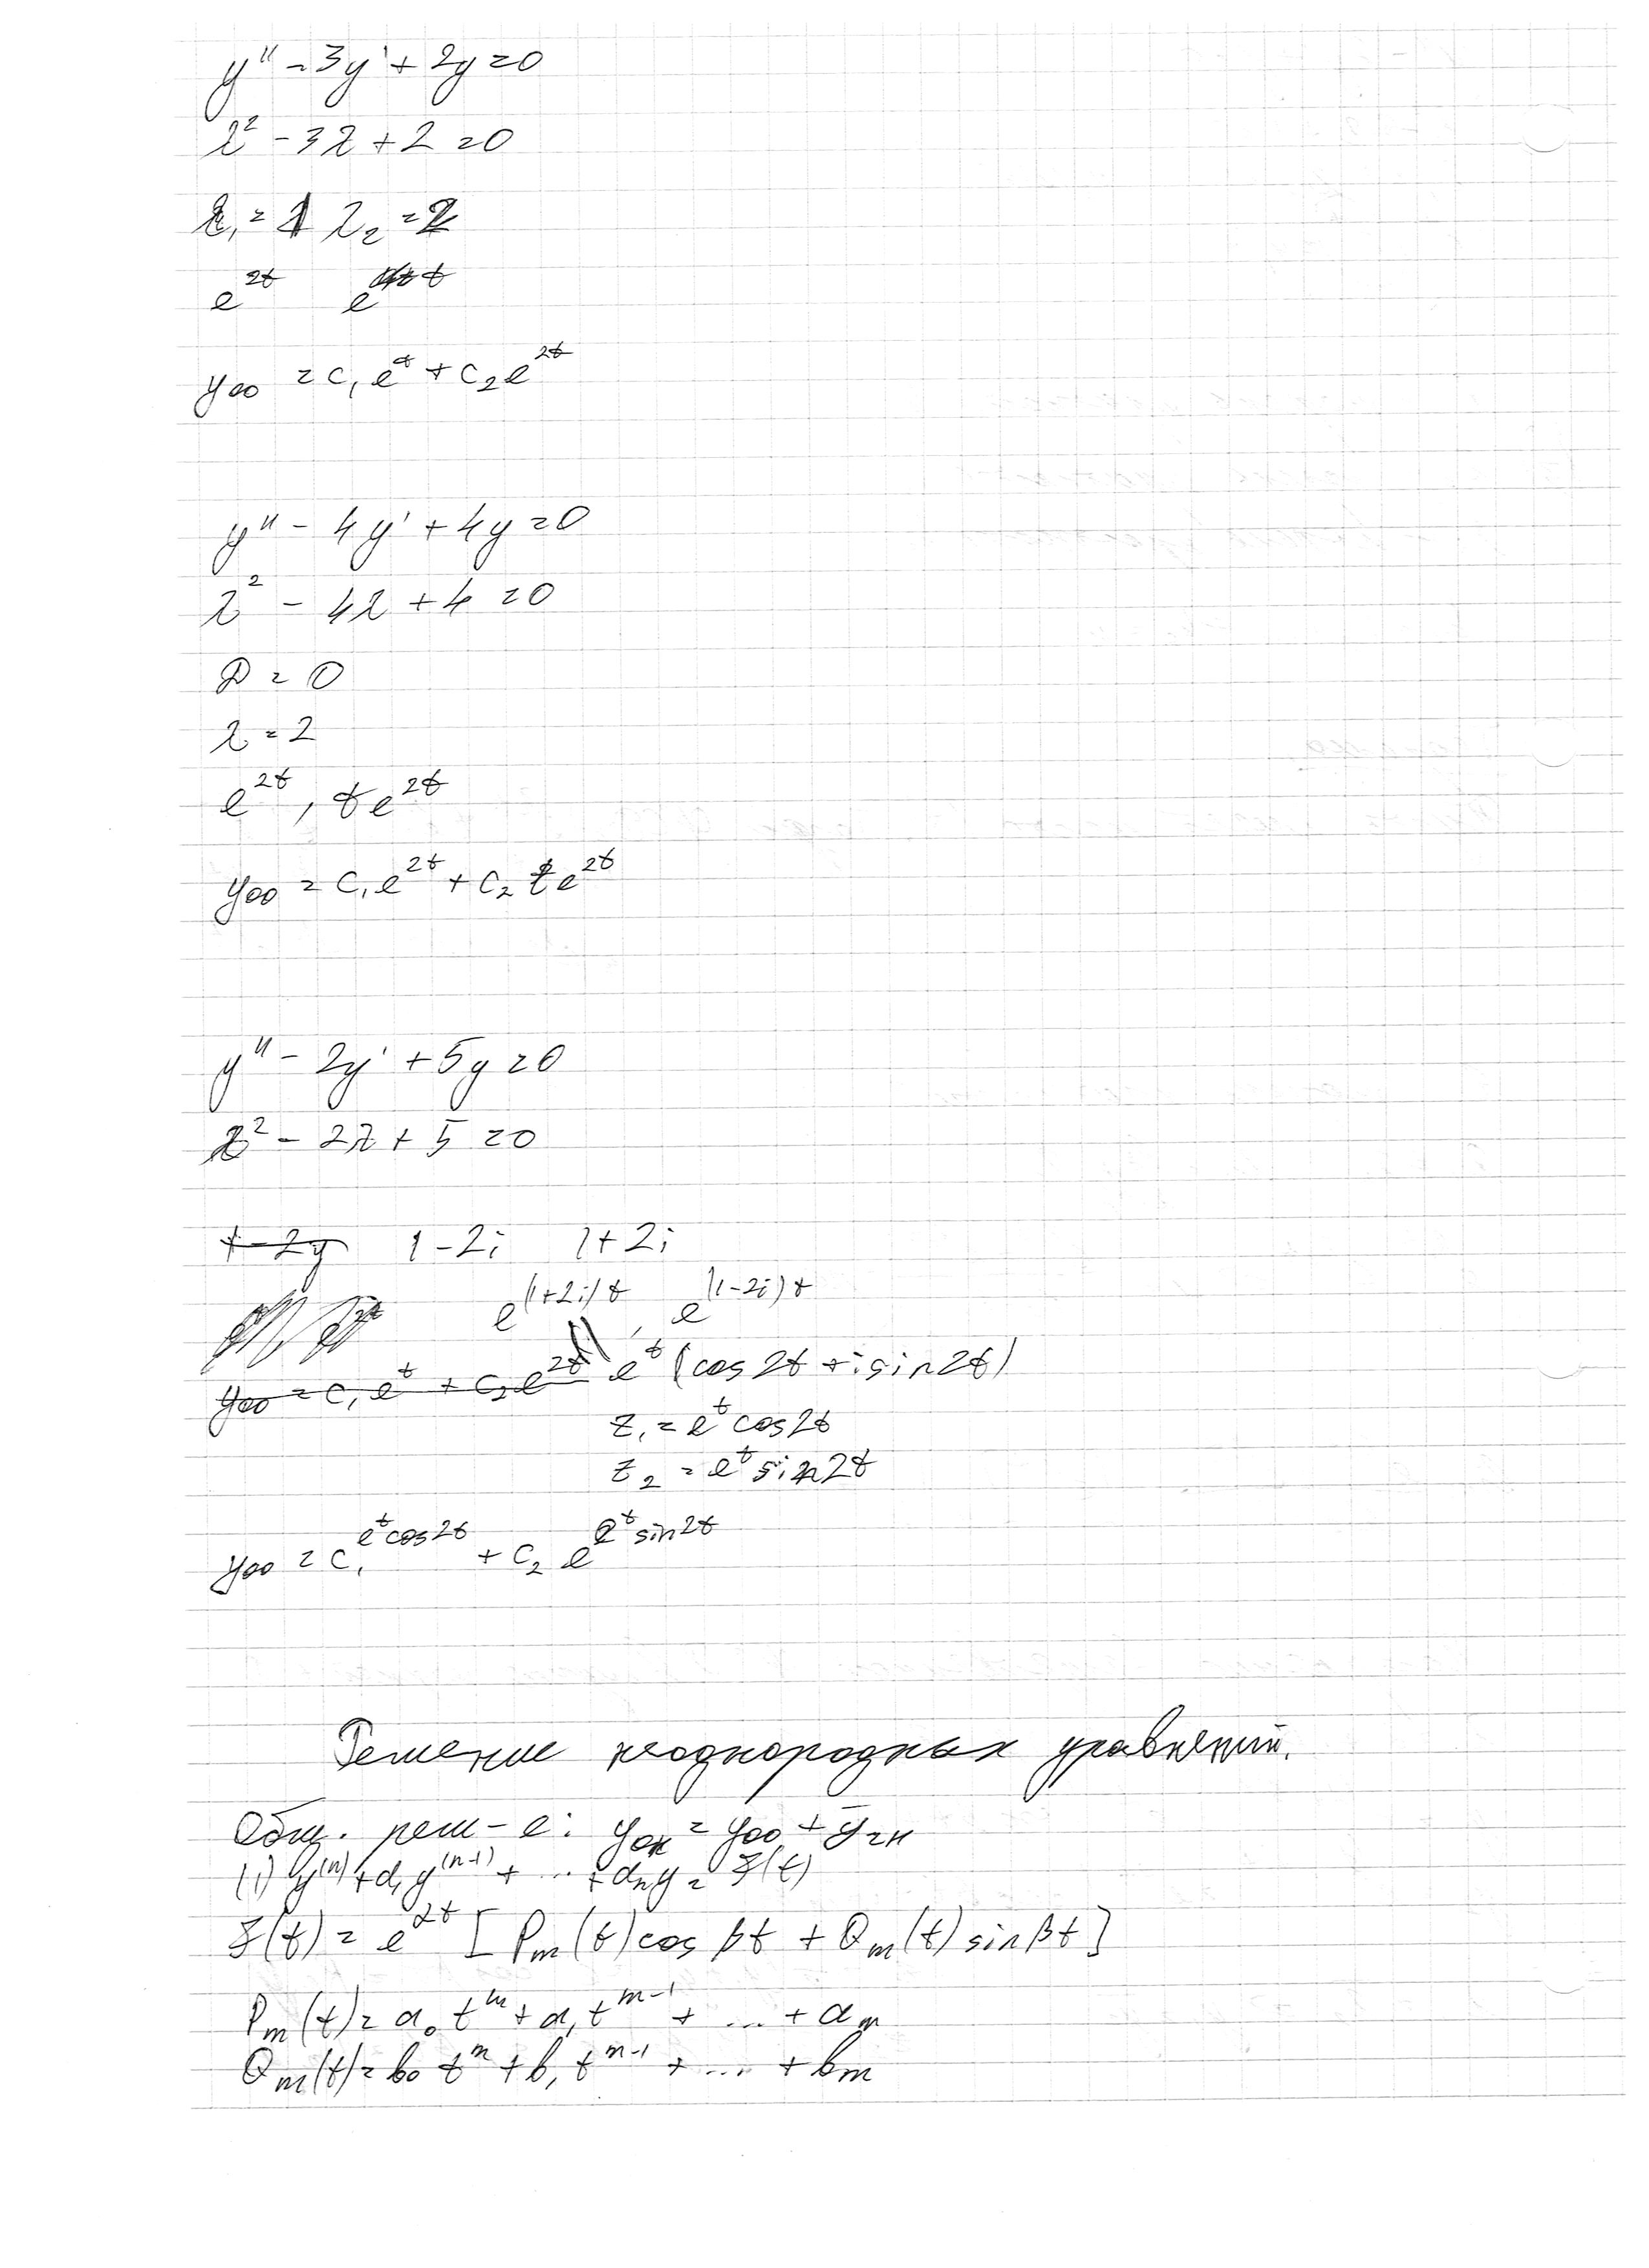 y'' - 3y' + 2y = 0
λ² - 3λ + 2 = 0
λ₁ = 1 λ₂ = 2
e^{2t} e^{t}
y₀₀ = C₁e^{t} + C₂e^{2t}
y'' - 4y' + 4y = 0
λ² - 4λ + 4 = 0
D = 0
λ = 2
e^{2t}, te^{2t}
y₀₀ = C₁e^{2t} + C₂te^{2t}
y'' - 2y' + 5y = 0
λ² - 2λ + 5 = 0
1 - 2i 1 + 2i
e^{(1+2i)t}, e^{(1-2i)t}
y₀₀ = C₁e^{t} + C₂e^{2t} e^{t}(cos2t + i sin2t)
z₁ = e^{t}cos2t
z₂ = e^{t}sin2t
y₀₀ = C₁^{e^{t}cos2t} + C₂e^{e^{t}sin2t}
Решение неоднородных уравнений.
Общ. реш-е: yон = y₀₀ + ȳчн
(1) y^{(n)} + a₁y^{(n-1)} + ... + aₙy = F(t)
F(t) = e^{αt}[Pm(t)cosβt + Qm(t)sinβt]
Pm(t) = a₀t^{m} + a₁t^{m-1} + ... + am
Qm(t) = b₀t^{m} + b₁t^{m-1} + ... + bm